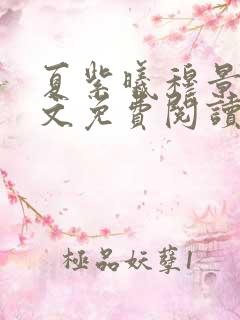 夏紫曦穆景
文免費閱讀
極品妖孽1